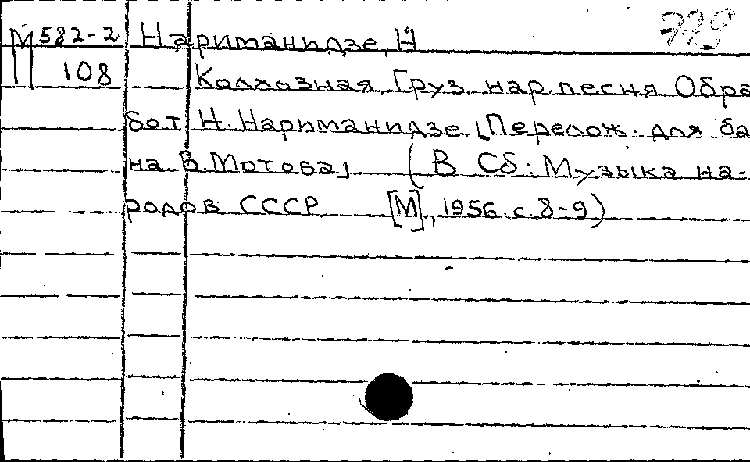 М 582-2 Нариманидзе, Н
108 Колхозная. Груз. нар песня Обра
бот. Н. Нариманидзе. [Перелож. для ба
на В. Мотова] (В Сб: Музыка на-
родов СССР [М], 1956. с. 8-9)